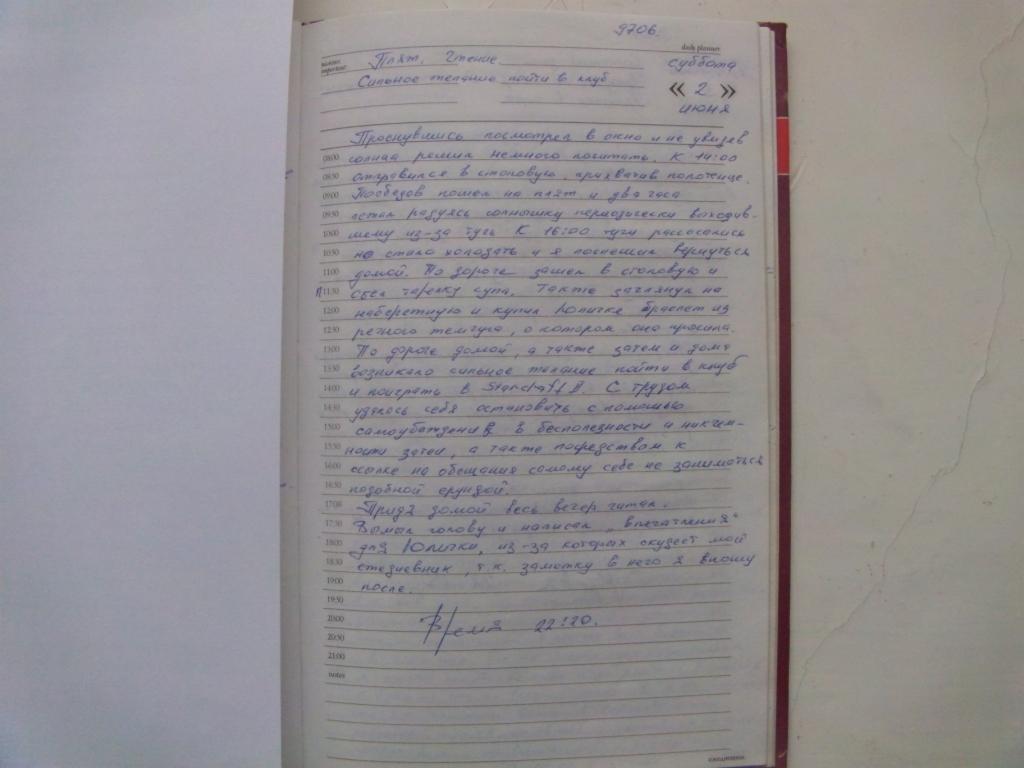 9706.
daily planner
Пляж. Чтение
суббота
Сильное желание пойти в клуб.
« 2 »
июня
Проснувшись посмотрел в окно и не увидев
08:00 солнца решил немного почитать. К 14:00
08:30 отправился в столовую, прихватив полотенце.
09:00 Пообедов пошел на пляж и два часа
09:30 лежал радуясь солнышку периодически выходив-
10:00 шему из-за туч. К 16:00 тучи рассосались
10:30 но стало холодать и я поспешил вернуться
11:00 домой. По дороге зашел в столовую и
11:30 съел тарелку супа. Также заглянул на
12:00 набережную и купил Юличке браслет из
12:30 речного жемчуга, о котором она просила.
13:00 По дороге домой, а также затем и дома
13:30 возникало сильное желание пойти в клуб
14:00 и поиграть в С трудом
14:30 удалось себя остановить с помошью
15:00 самоубеждения в бесполезности и никчем-
15:30 ности затеи, а также посредством к
16:00 ссылке на обещания самому себе не заниматься
16:30 подобной ерундой.
17:00 Придя домой весь вечер читал.
17:30 Вымыл голову и написал „впечатления"
18:00 для Юлички, из-за которых скудеет мой
18:30 ежедневник, т.к. заметку в него я вношу
19:00 после.
19:30
20:00 Время 22:20.
20:30
21:00
notes
ежедневник